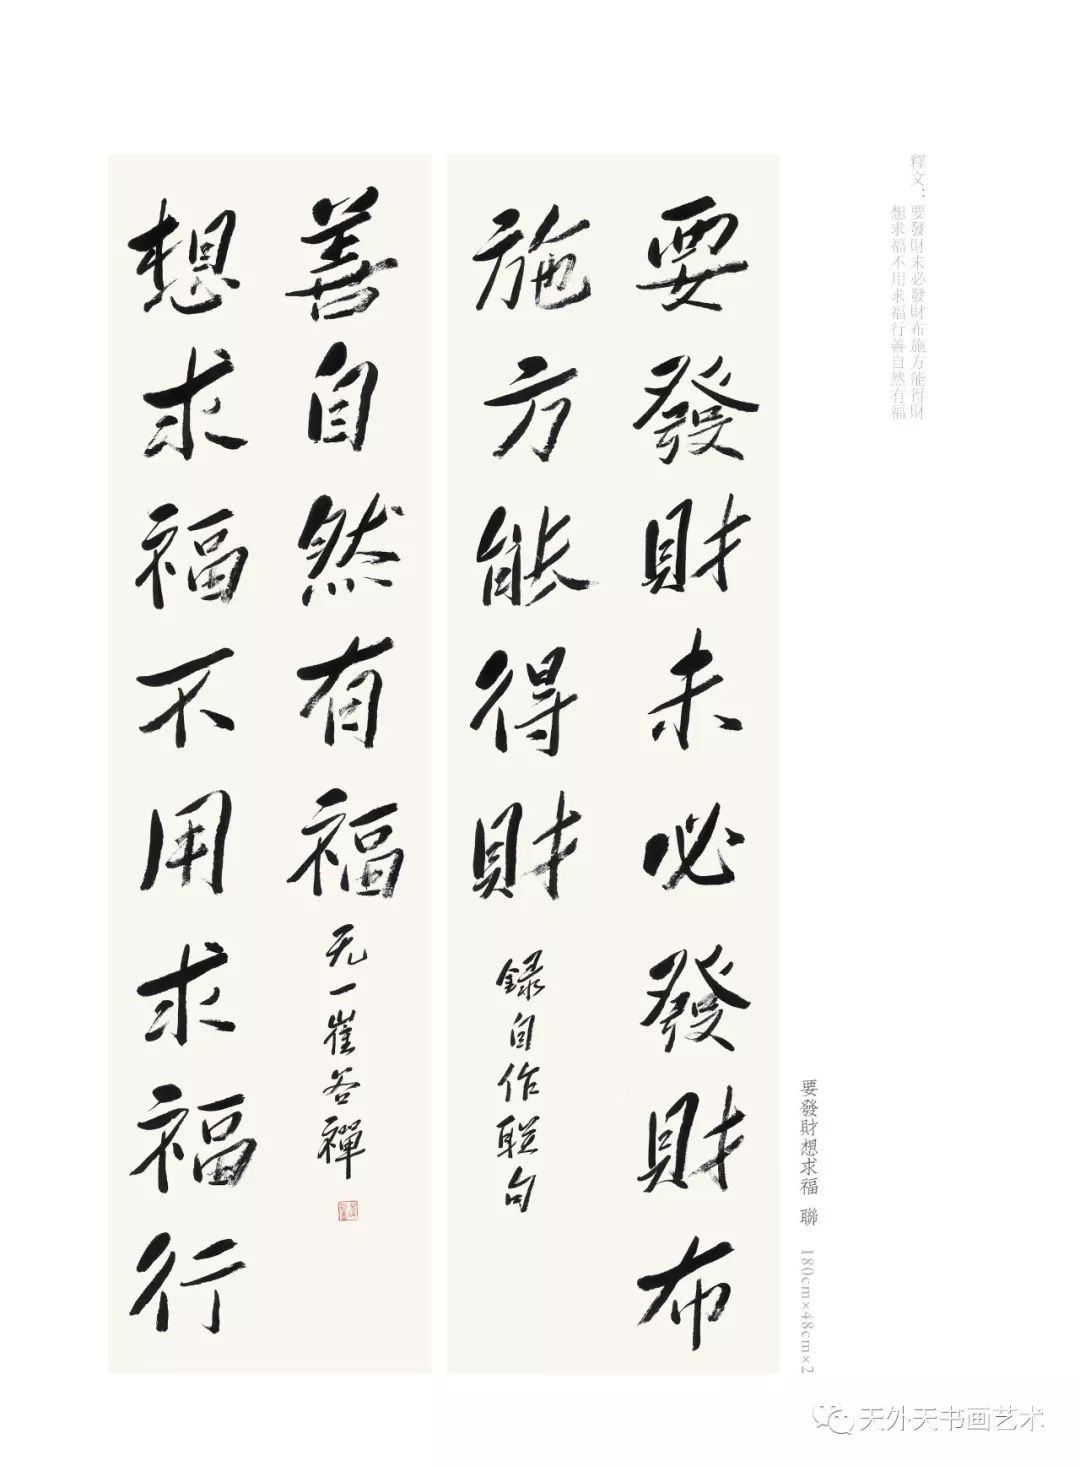 釋文：要發財未必發財布施方能得財
想求福不用求福行善自然有福
要發財想求福 聯 180cm×48cm×2
要發財未必發財布
施方能得財
錄自作联句
想求福不用求福行
善自然有福
无一崔谷禪
天外天书画艺术